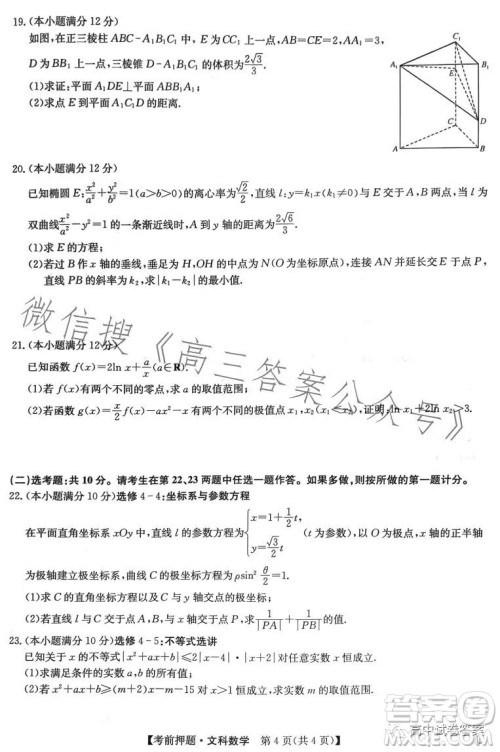 19.(本小题满分 12 分)
如图,在正三棱柱 ABC-A₁B₁C₁ 中,E 为 CC₁ 上一点,AB=CE=2,AA₁=3,
D 为 BB₁ 上一点,三棱锥 D-A₁B₁C₁ 的体积为 2√3/3.
(1)求证:平面 A₁DE⊥平面 ABB₁A₁;
(2)求点 E 到平面 A₁C₁D 的距离.
C₁
A₁ B₁
E
D
C
A B
20.(本小题满分 12 分)
已知椭圆 E:x²/a²+y²/b²=1(a>b>0)的离心率为 √2/2,直线 l:y=k₁x(k₁≠0)与 E 交于 A,B 两点,当 l 为
双曲线 x²/a²-y²/b²=1 的一条渐近线时,A 到 y 轴的距离为 2√6/3.
(1)求 E 的方程;
(2)若过 B 作 x 轴的垂线,垂足为 H,OH 的中点为 N(O 为坐标原点),连接 AN 并延长交 E 于点 P,
直线 PB 的斜率为 k₂,求|k₁-k₂|的最小值.
21.(本小题满分 12 分)
已知函数 f(x)=2ln x+a/x(a∈R).
(1)若 f(x)有两个不同的零点,求 a 的取值范围;
(2)若函数 g(x)=x/2 f(x)-ax²-x/2 有两个不同的极值点 x₁,x₂(x₁<x₂),证明:ln x₁+2ln x₂>-3.
(二)选考题:共 10 分。请考生在第 22、23 两题中任选一题作答。如果多做,则按所做的第一题计分。
22.(本小题满分 10 分)选修 4-4:坐标系与参数方程
在平面直角坐标系 xOy 中,直线 l 的参数方程为{x=1+1/2 t, y=√3/2 t (t 为参数),以 O 为极点,x 轴的正半轴
为极轴建立极坐标系,曲线 C 的极坐标方程为 ρsin² θ/2=1.
(1)求 C 的直角坐标方程以及 l 的普通方程;
(2)若直线 l 与 C 交于 A,B 两点,与 y 轴交于点 P,求 1/|PA|+1/|PB|的值.
23.(本小题满分 10 分)选修 4-5:不等式选讲
已知关于 x 的不等式|x²+ax+b|≤2|x-4|·|x+2|对任意实数 x 恒成立.
(1)求满足条件的实数 a,b 的值;
(2)若 x²+ax+b≥(m+2)x-m-15 对 x>1 恒成立,求实数 m 的取值范围.
【考前押题·文科数学 第 4 页(共 4 页)】
微信搜《高三答案公众号》
高中试卷答案